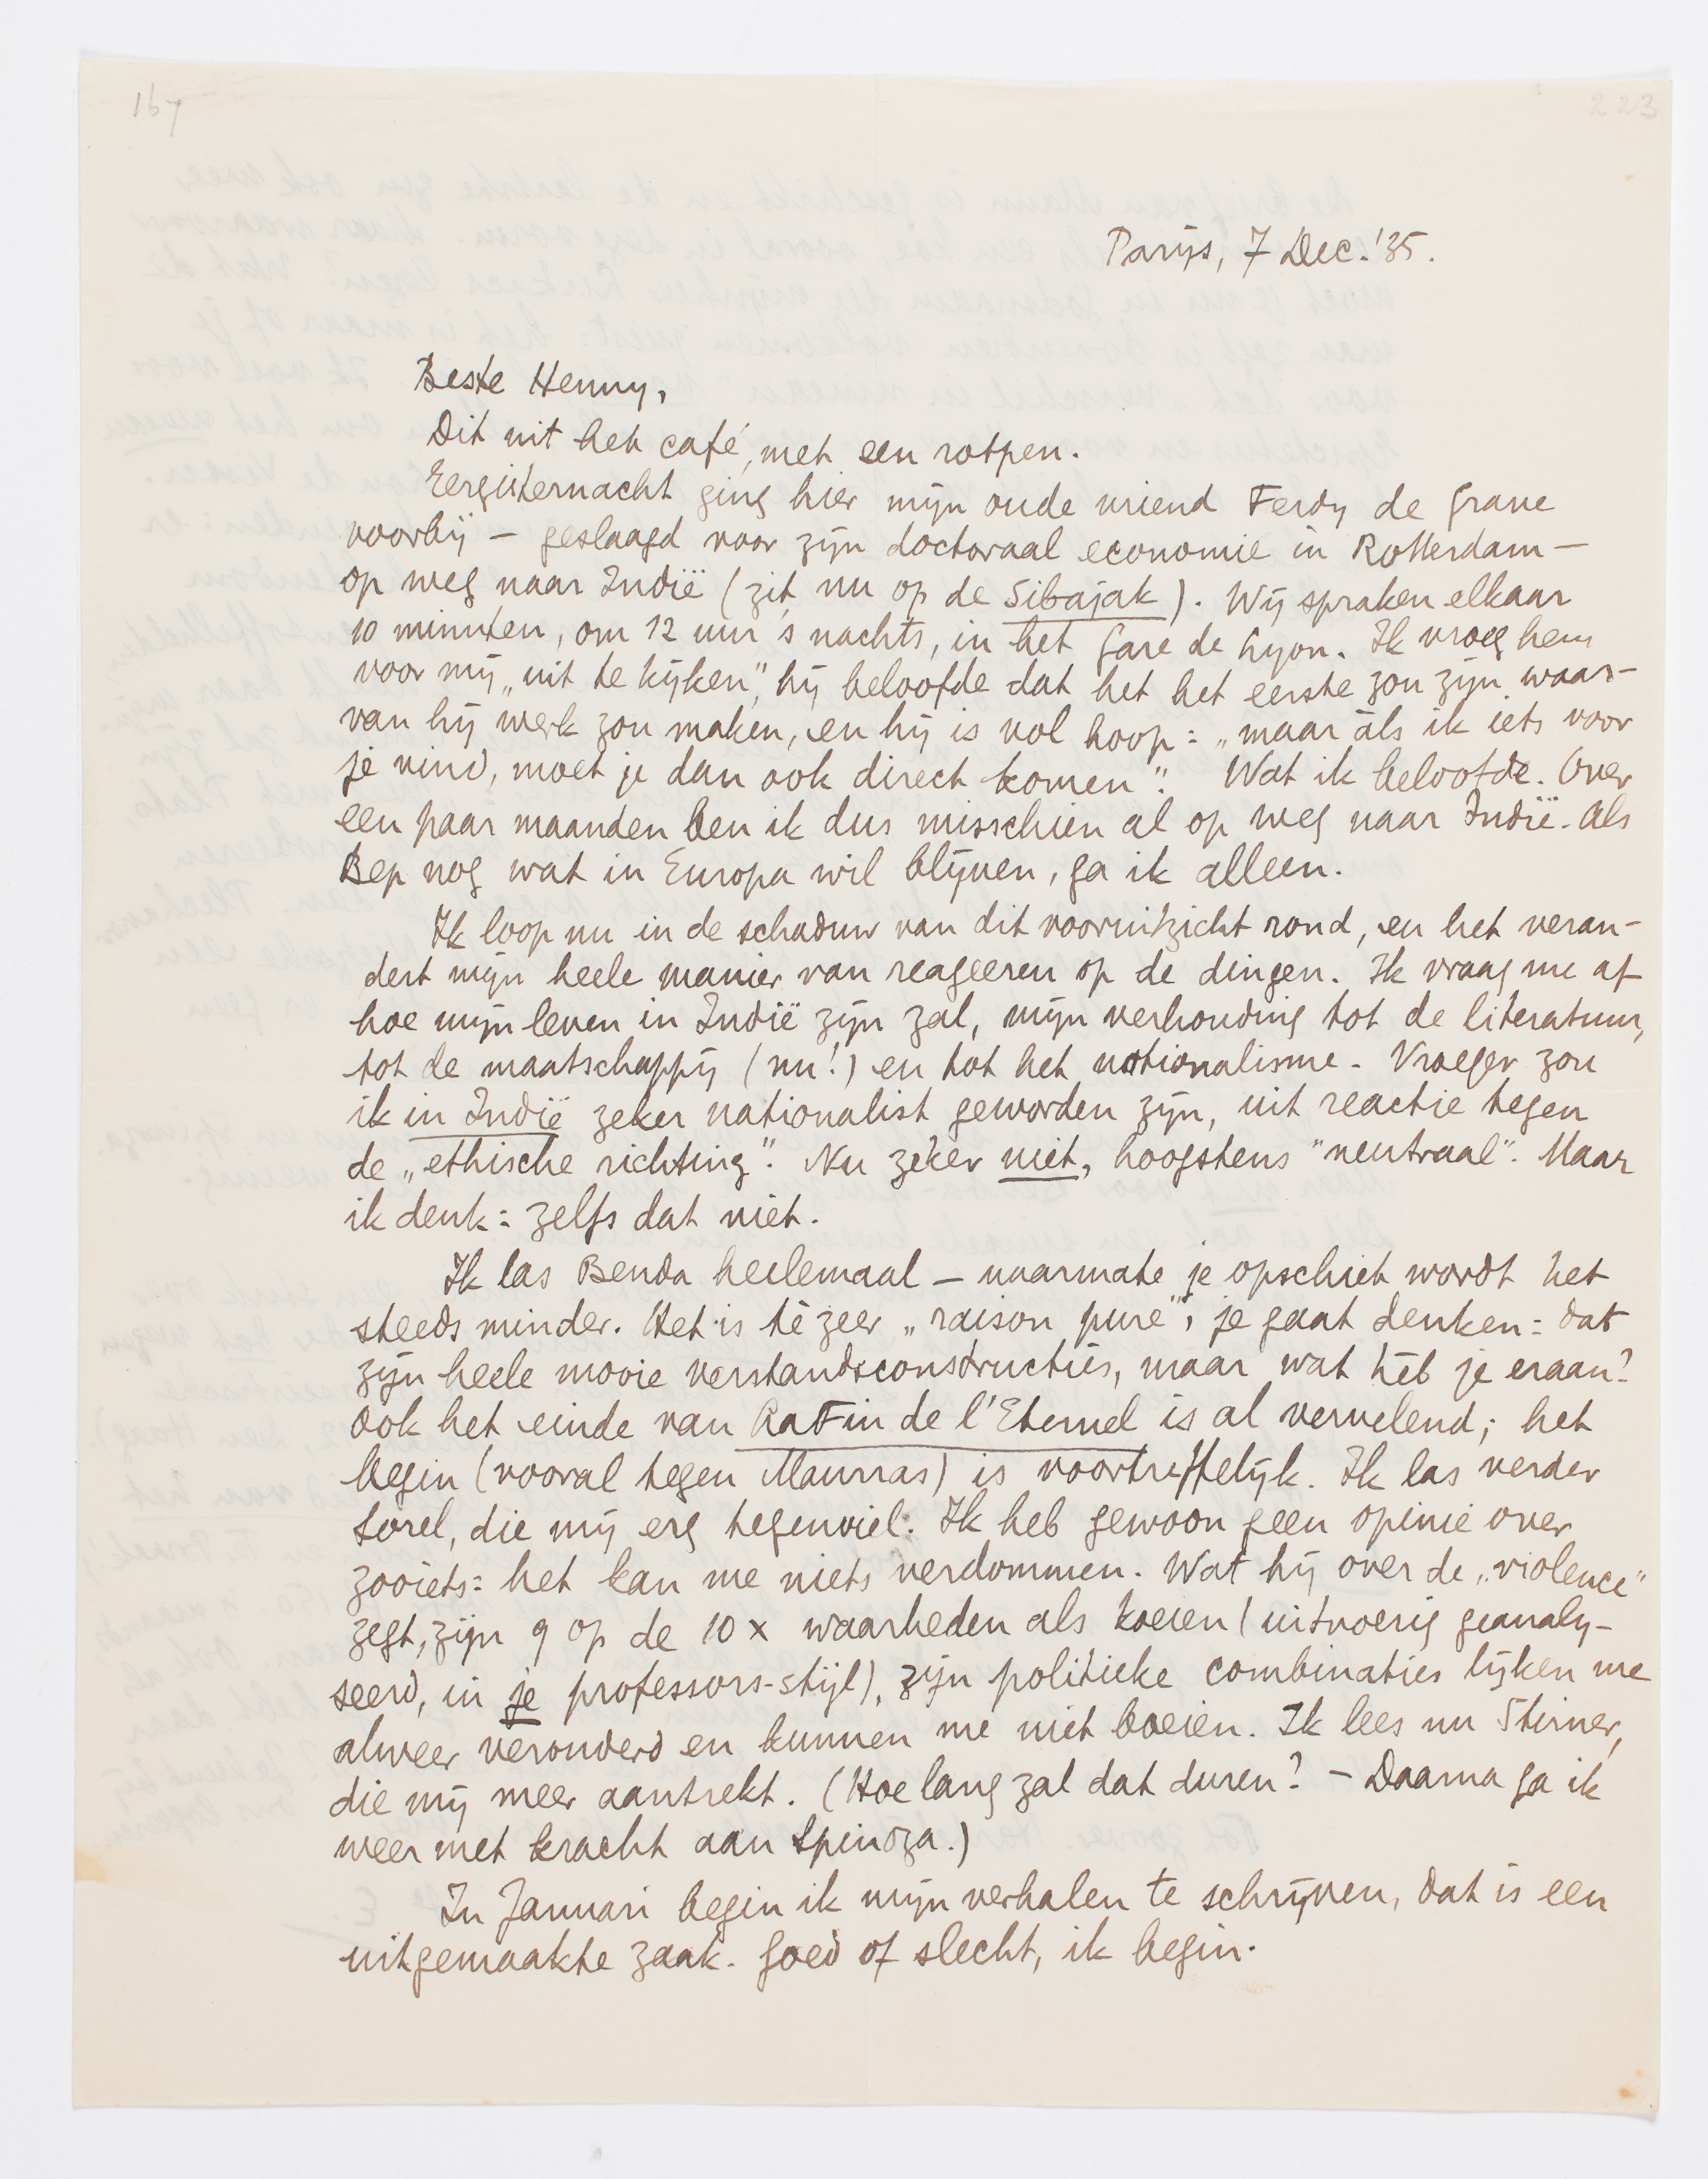 167
223
Parijs, 7 Dec. '35.
Beste Henny,
Dit uit het café, met een rotpen.
Eergisternacht ging hier mijn oude vriend Ferdy de Grave
voorbij — geslaagd voor zijn doctoraal economie in Rotterdam —
op weg naar Indië (zit nu op de Sibajak). Wij spraken elkaar
10 minuten, om 12 uur 's nachts, in het Gare de Lyon. Ik vroeg hem
voor mij „uit te kijken”, hij beloofde dat het het eerste zou zijn waar-
van hij werk zou maken, en hij is vol hoop: „maar àls ik iets voor
je vind, moet je dan ook direct komen”. Wat ik beloofde. Over
een paar maanden ben ik dus misschien al op weg naar Indië. Als
Bep nog wat in Europa wil blijven, ga ik alleen.
Ik loop nu in de schaduw van dit vooruitzicht rond, en het veran-
dert mijn heele manier van reageeren op de dingen. Ik vraag me af
hoe mijn leven in Indië zijn zal, mijn verhouding tot de literatuur,
tot de maatschappij (nu!) en tot het nationalisme. Vroeger zou
ik in Indië zeker nationalist geworden zijn, uit reactie tegen
de „ethische richting”. Nu zéker niet, hoogstens "neutraal". Maar
ik denk: zelfs dat niet.
Ik las Benda heelemaal — naarmate je opschiet wordt het
steeds minder. Het is té zeer „raison pure”, je gaat denken: dat
zijn heele mooie verstandsconstructies, maar wat héb je eraan?
Ook het einde van La Fin de l'Eternel is al vervelend; het
begin (vooral tegen Maurras) is voortreffelijk. Ik las verder
Sorel, die mij erg tegenviel. Ik heb gewoon geen opinie over
zooiets: het kan me niets verdommen. Wat hij over de „violence”
zegt, zijn 9 op de 10 x waarheden als koeien (uitvoerig geanaly-
seerd, in je professors-stijl), zijn politieke combinaties lijken me
alweer verouderd en kunnen me niet boeien. Ik lees nu Stirner,
die mij meer aantrekt. (Hoe lang zal dat duren? — Daarna ga ik
weer met kracht aan Spinoza.)
In Januari begin ik mijn verhalen te schrijven, dat is een
uitgemaakte zaak. Goed of slecht, ik begin.